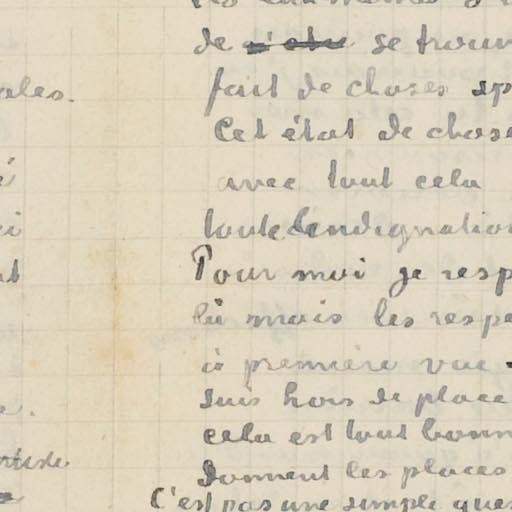 de se trouv
fait de choses sp
Cet état de chose
avec tout cela
toute l'indignation
Pour moi je resp
là mais les respe
à première vue
suis hors de place
cela est tout bonn
donnent les places
C'est pas une simple ques
ales.
é
i
t
e.